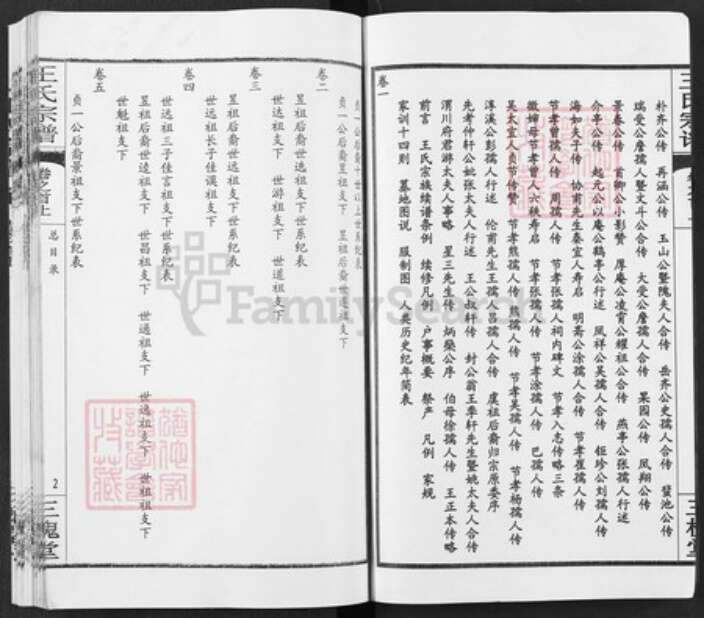 王氏宗谱
朴齐公传 再涵公传 玉山公暨隗夫人合传 岳齐公史孺人合传 螀池公传
瑞受公詹孺人暨文斗公合传 大受公詹孺人合传 果园公传 凤翔公传
景春公传 首卿公小影赞 厚庵公凌霄公耀祖公合传 燕亭公张孺人行述
介亭公传 起元公以庵公鹤亭公行述 凤祥公吴孺人合传 钜珍公刘孺人传
海如夫子传 协甫先生秦宜人寿启 明斋公涂孺人合传 节孝崔孺人传
节孝曾孺人传 周孺人传 节孝张孺人祠内碑文 节孝入志传略三条
徽婶母节孝曾人六秩寿启 节孝张孺人传 节孝涂孺人传 巴孺人传
吴太宜人贞节传赞 节孝熊孺人传 熊孺人传 节孝吴孺人传 节孝杨孺人传
淳溪公彭孺人行述 伦甫先生王孺人吕孺人合传 虞祖后裔归宗原委序
先考仲轩公妣张太夫人行述 王公叔轩传 封公翁王季轩先生暨姚太夫人合传
渭川府君游太夫人事略 星三先生传 炳燊公序 伯母徐孺人传 王正本传略
前言 王氏宗族续谱条例 续修凡例 户事概要 祭产 凡例 家规
家训十四则 墓地图说 服制图 人类历史纪年简表
卷一
贞一公后裔十世以上世系纪表
贞一公后裔昱祖支下 昱祖后裔世逵祖支下
卷二
昱祖后裔世选祖支下世系纪表
世达祖支下 世游祖支下 世道祖支下
卷三
昱祖后裔世远祖支下世系纪表
世远祖长子佳谟祖支下
卷四
世远祖三子佳言祖支下世系纪表
昱祖后裔世逵祖支下 世昌祖支下 世通祖支下 世逸祖支下 世祖祖支下
世魁祖支下
卷五
贞一公后裔景祖支下世系纪表
王氏宗谱
卷之首上
总目录
2
三槐堂
三槐堂
FamilySearch